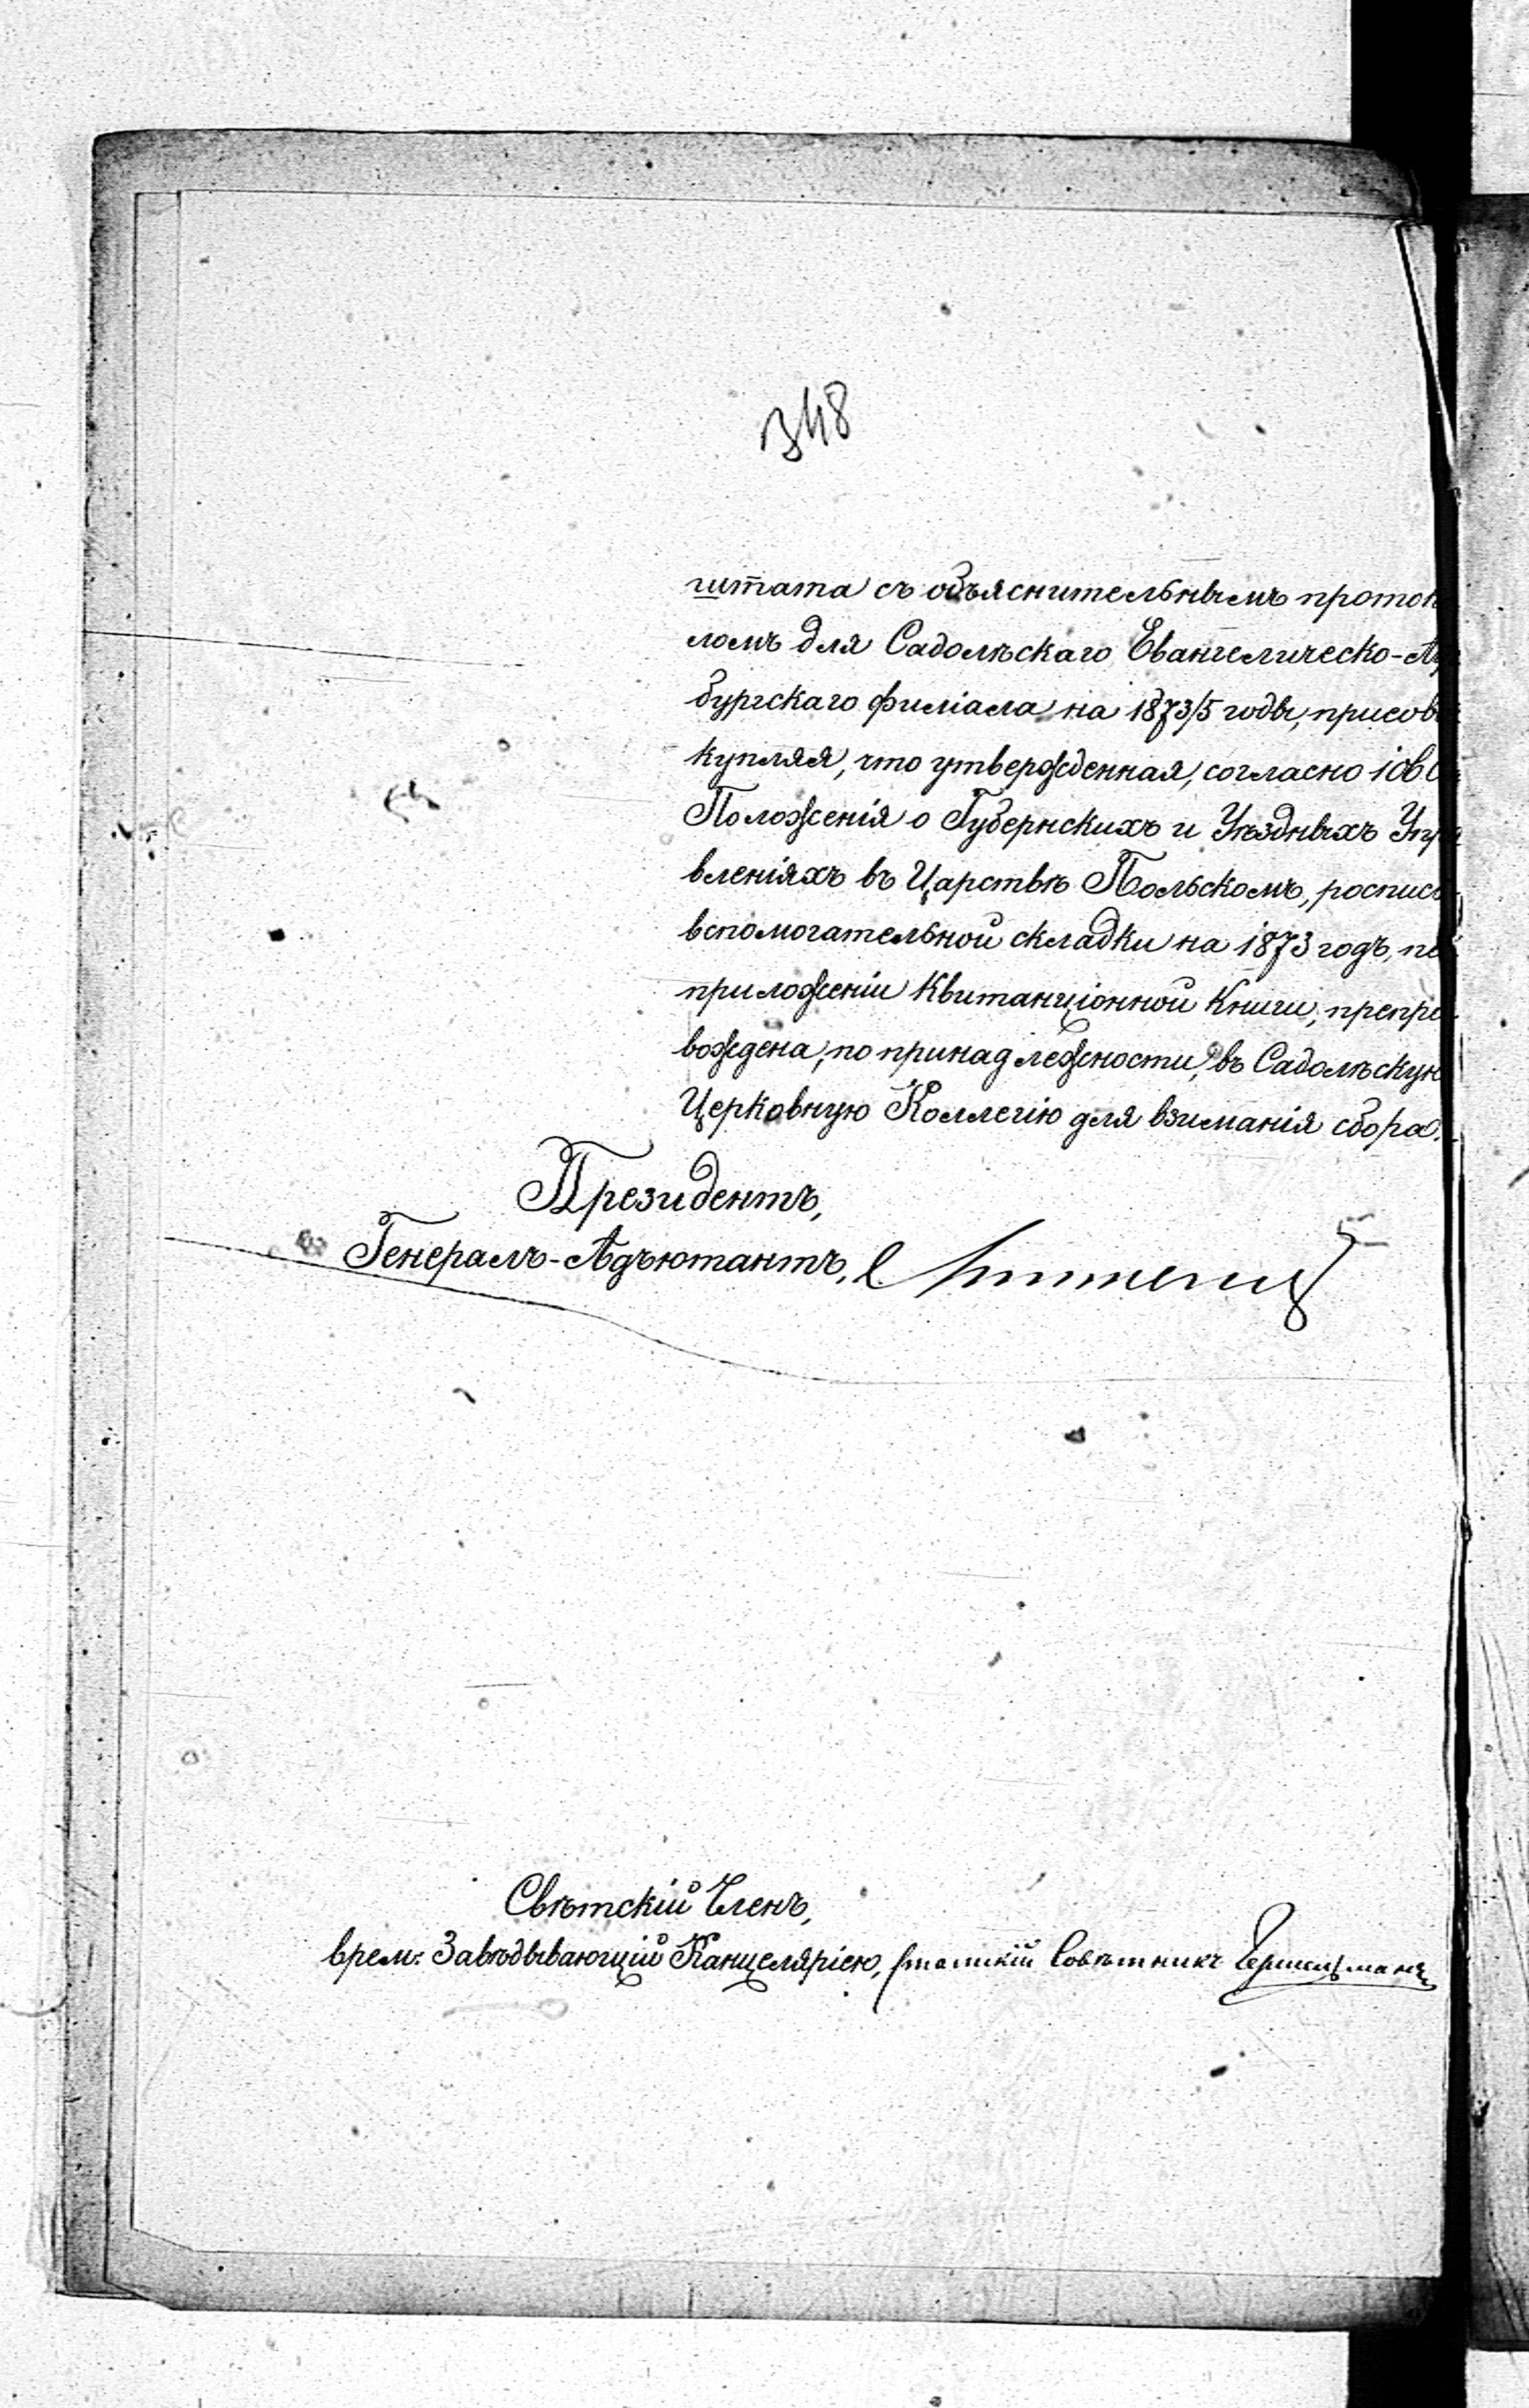 348
штата съ объяснительнымъ проток
ломъ для Садолѣскаго Евангелическо-А
бургскаго филіала на 1873/5 годы, присово
купляя, что утвержденная, согласно 106
Положенія о Губернскихъ и Уѣздныхъ Упра
вленіяхъ въ Царствѣ Польскомъ, роспись
вспомогательной складки на 1873 годъ, по
приложеніи Квитанціонной Книги, препро
вождена, по принадлежности, въ Садолѣскую
Церковную Коллегію для взиманія сбора.
Президентъ,
Генералъ-Адъютантъ,
Свѣтскій Членъ,
врем: Завѣдывающій Канцеляріею, Статскій Совѣтникъ